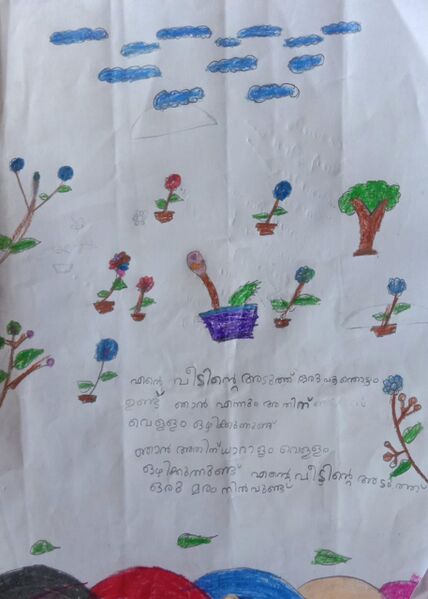 എന്റെ വീടിന്റെ അടുത്ത് ഒരു പൂന്തോട്ടം
ഉണ്ട് ഞാൻ എന്നും അതിന്
വെള്ളം ഒഴിക്കുന്നുണ്ട്
ഞാൻ അതിന് ധാരാളം വെള്ളം
ഒഴിക്കുന്നുണ്ട് എന്റെ വീട്ടിന്റെ അടുത്ത്
ഒരു മരം നിൽപ്പുണ്ട്